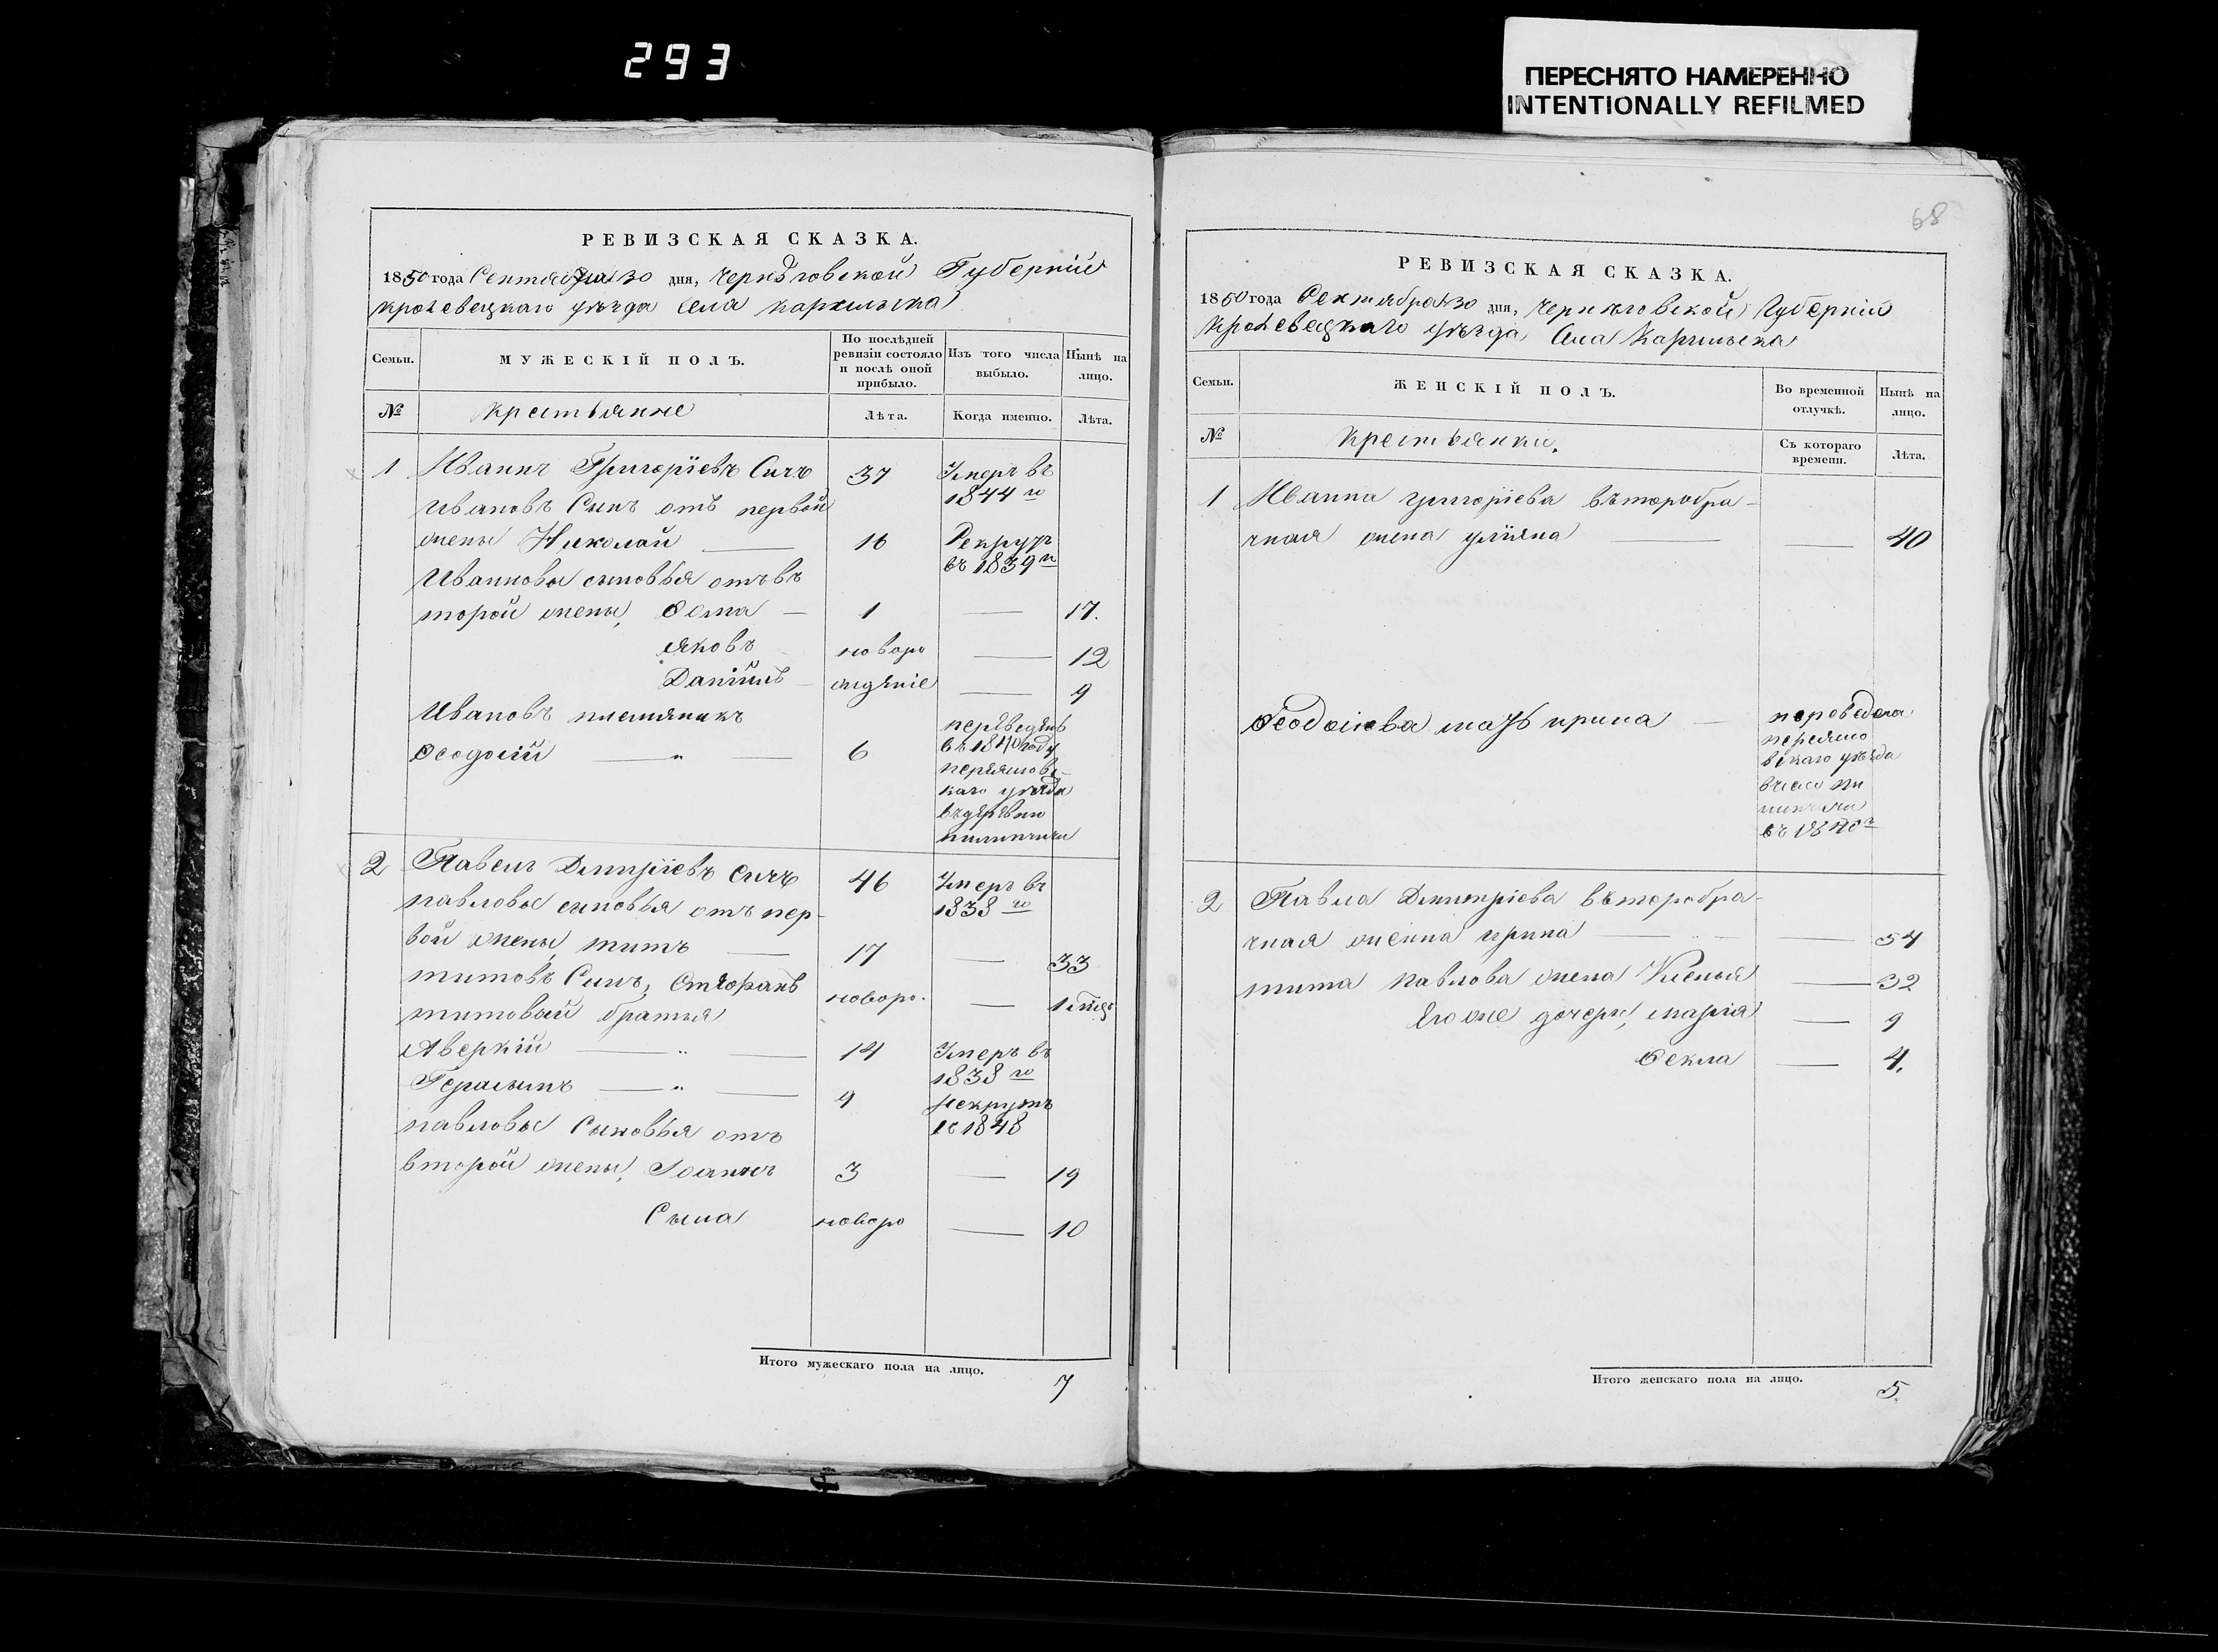 293
ПЕРЕСНЯТО НАМЕРЕННО
INTENTIONALLY REFILMED
РЕВИЗСКАЯ СКАЗКА.
1850 года Сентября 30 дня, Черниговской Губернiи
Кролевецкаго уѣзда Села Каргильска
Семьи.
МУЖЕСКІЙ ПОЛЪ.
По послѣдней ревизіи состояло и послѣ оной прибыло.
Изъ того числа выбыло.
Нынѣ на лицо.
№
крестьяне
Лѣта.
Когда именно.
Лѣта.
1 Иванъ Григорiевъ Сичъ 37 Умеръ въ 1844 го
Ивановъ Сынъ отъ первой
жены Николай 16 Рекрутъ въ 1839 го
Ивановы сыновья отъ в
торой жены, Ѳома 1 17.
Яковъ новоро 12
Данiилъ жденiе 9
Ивановъ племяникъ
Ѳеодосiй " 6 переведенъ
въ 1840 году
уѣзда
въ деревню
2 Павелъ Дмитрiевъ Сичъ 46 Умеръ въ 1838 го
павловы сыновья отъ пер-
вой жены, титъ 17 33
титовъ Сынъ, Стефанъ новоро. 1 мѣ
титовый братья
Аверкiй " 14 Умеръ въ 1838 го
Герасимъ " 9 Рекрутъ въ 1848
павловы Сыновья отъ
второй жены, Iоаннъ 3 19
Сыла новоро 10
Итого мужескаго пола на лицо.
7
68
РЕВИЗСКАЯ СКАЗКА.
1850 года Сентября 30 дня, Черниговской Губернiи
Кролевецкаго уѣзда, Села Каргильска
Семьи.
ЖЕНСКІЙ ПОЛЪ.
Во временной отлучкѣ.
Нынѣ на лицо.
№
крестьянки.
Съ котораго времени.
Лѣта.
1 Ивана григорiева второбра-
чная жена улiяна 40
Ѳеодосiева мать ирина переведена
уѣзда
въ 1840 г
2 Павла Дмитрiева второбра-
чная женна ирина 54
тита павлова жена Улiянiя 32
Его же дочери, марiя 9
Ѳекла 4.
Итого женскаго пола на лицо.
5.